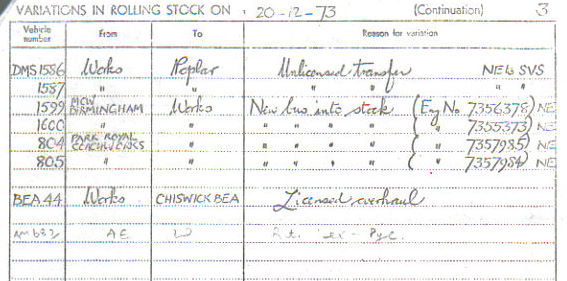 VARIATIONS IN ROLLING STOCK ON 20-12-73 (Continuation) 3
Vehicle number From To Reason for variation
DMS1586 Works Poplar Unlicensed transfer NE to SVS
1587 " " " "
1599 MCW BIRMINGHAM Works New bus into stock (Eng No 7356378) NE
1600 " " " " " " ( " 7355373) NE
804 PARK ROYAL COACHWORKS " " " " " ( " 7357985) NE
805 " " " " " " ( " 7357984) NE
BEA 44 Works CHISWICK BEA Licensed overhaul
AE W